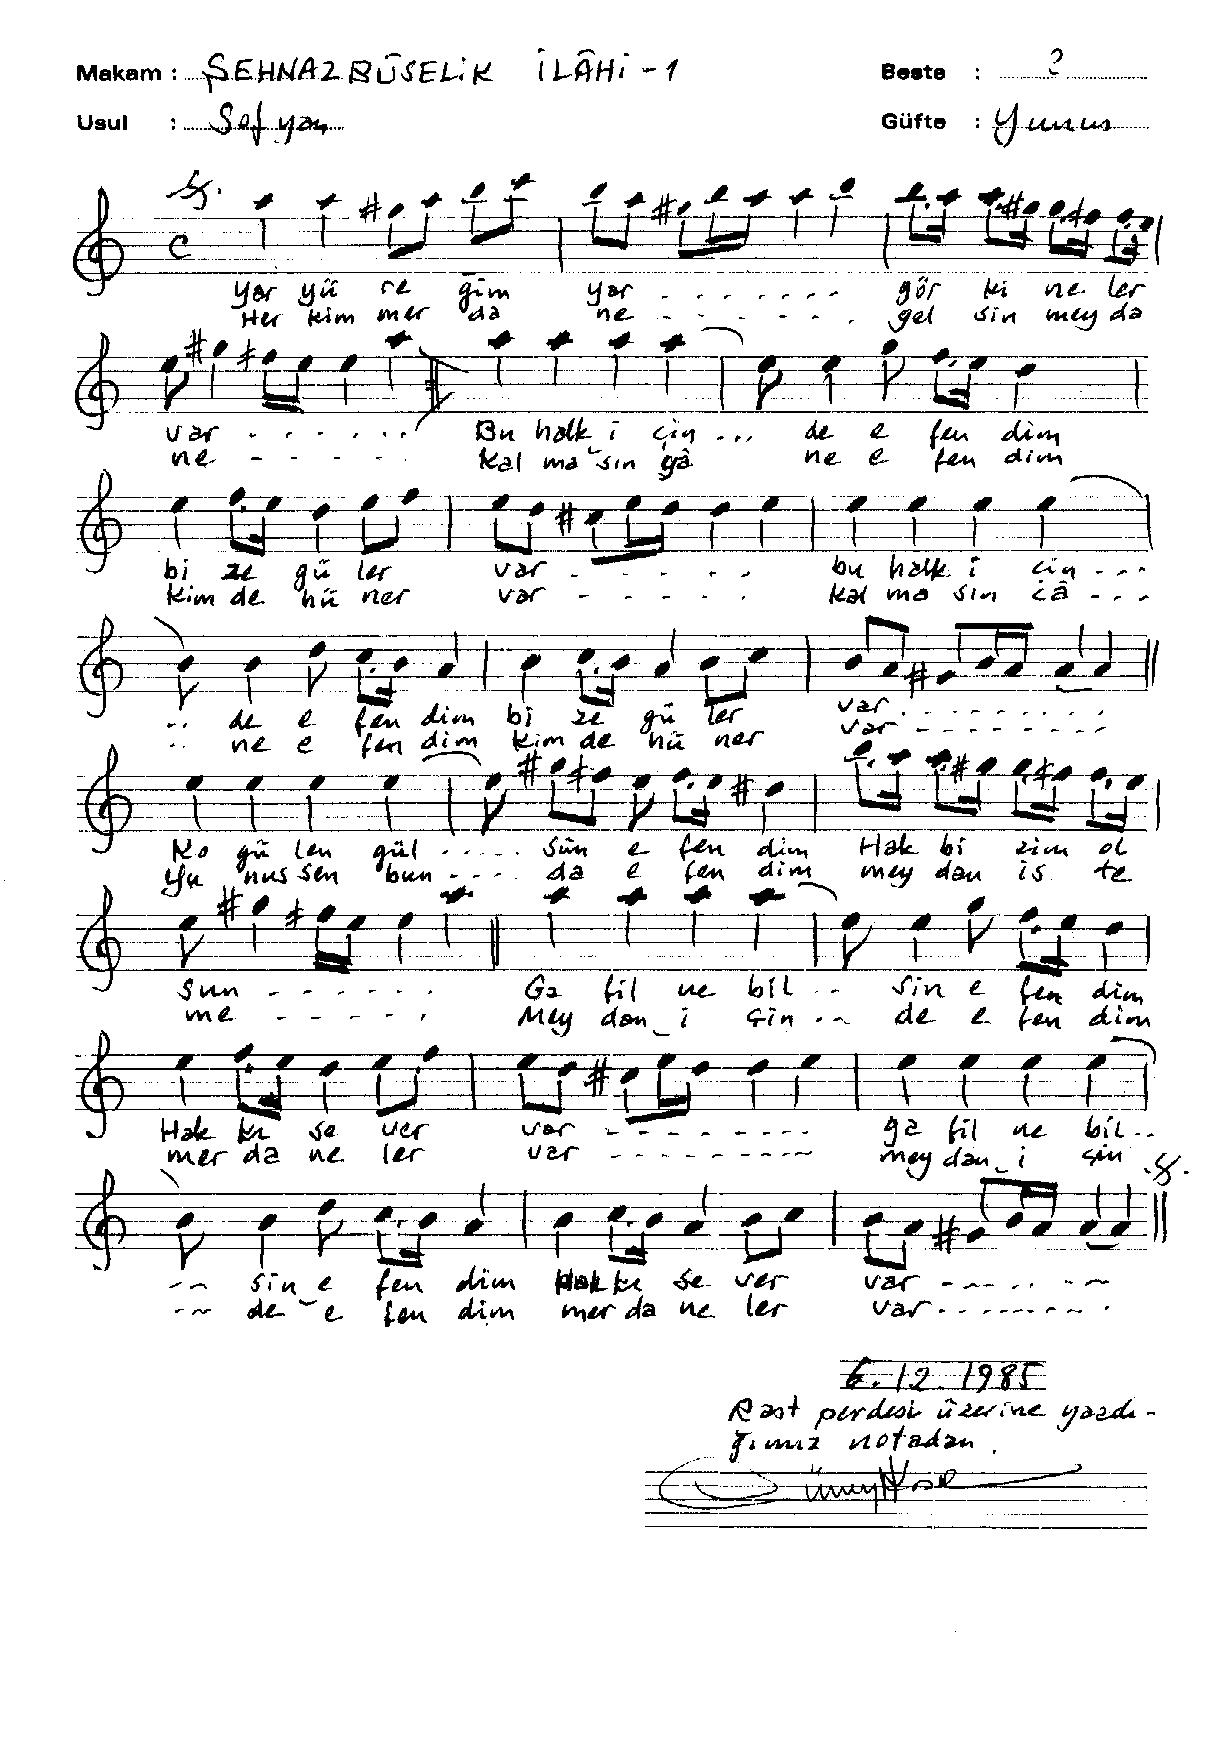 Makam : ŞEHNAZ BÛSELiK İLÂHi - 1 Beste : ?
Usul : Sofyan Güfte : Yunus
Yar yü re ğim yar - - - - - - gör ki ne ler
Her kim mer da ne - - - - - - . gel sin mey da
var - - - - - - Bu halk i çin ... de e fen dim
ne - - - - - - Kal ma sın yâ ne e fen dim
bi ze gü ler var - - - - - bu halk i çin - - -
kim de hü ner var - - - - - kal ma sin câ - - -
.. de e fen dim bi ze gü ler var . - - - - - - - -
.. ne e fen dim kim de hü ner var - - - - - - - -
Ko gü len gül - - - - - sün e fen dim Hak bi zim ol
Yu nus sen bun - - - - da e fen dim mey dan is te
sun - - - - - - Ga fil ne bil - - sin e fen dim
me - - - - - - Mey dan i çin - ~ de e fen dim
Hak kı se ver var - - - - - - - - ga fil ne bil - -
mer da ne ler var - - - - - - - - ~ mey dan i çin
-- sin e fen dim Hak kı se ver var - - - . . - ~
-~ de e fen dim mer da ne ler var - - - - - - - ~ .
6.12.1985
Rast perdesi üzerine yazdı-
ğımız notadan.